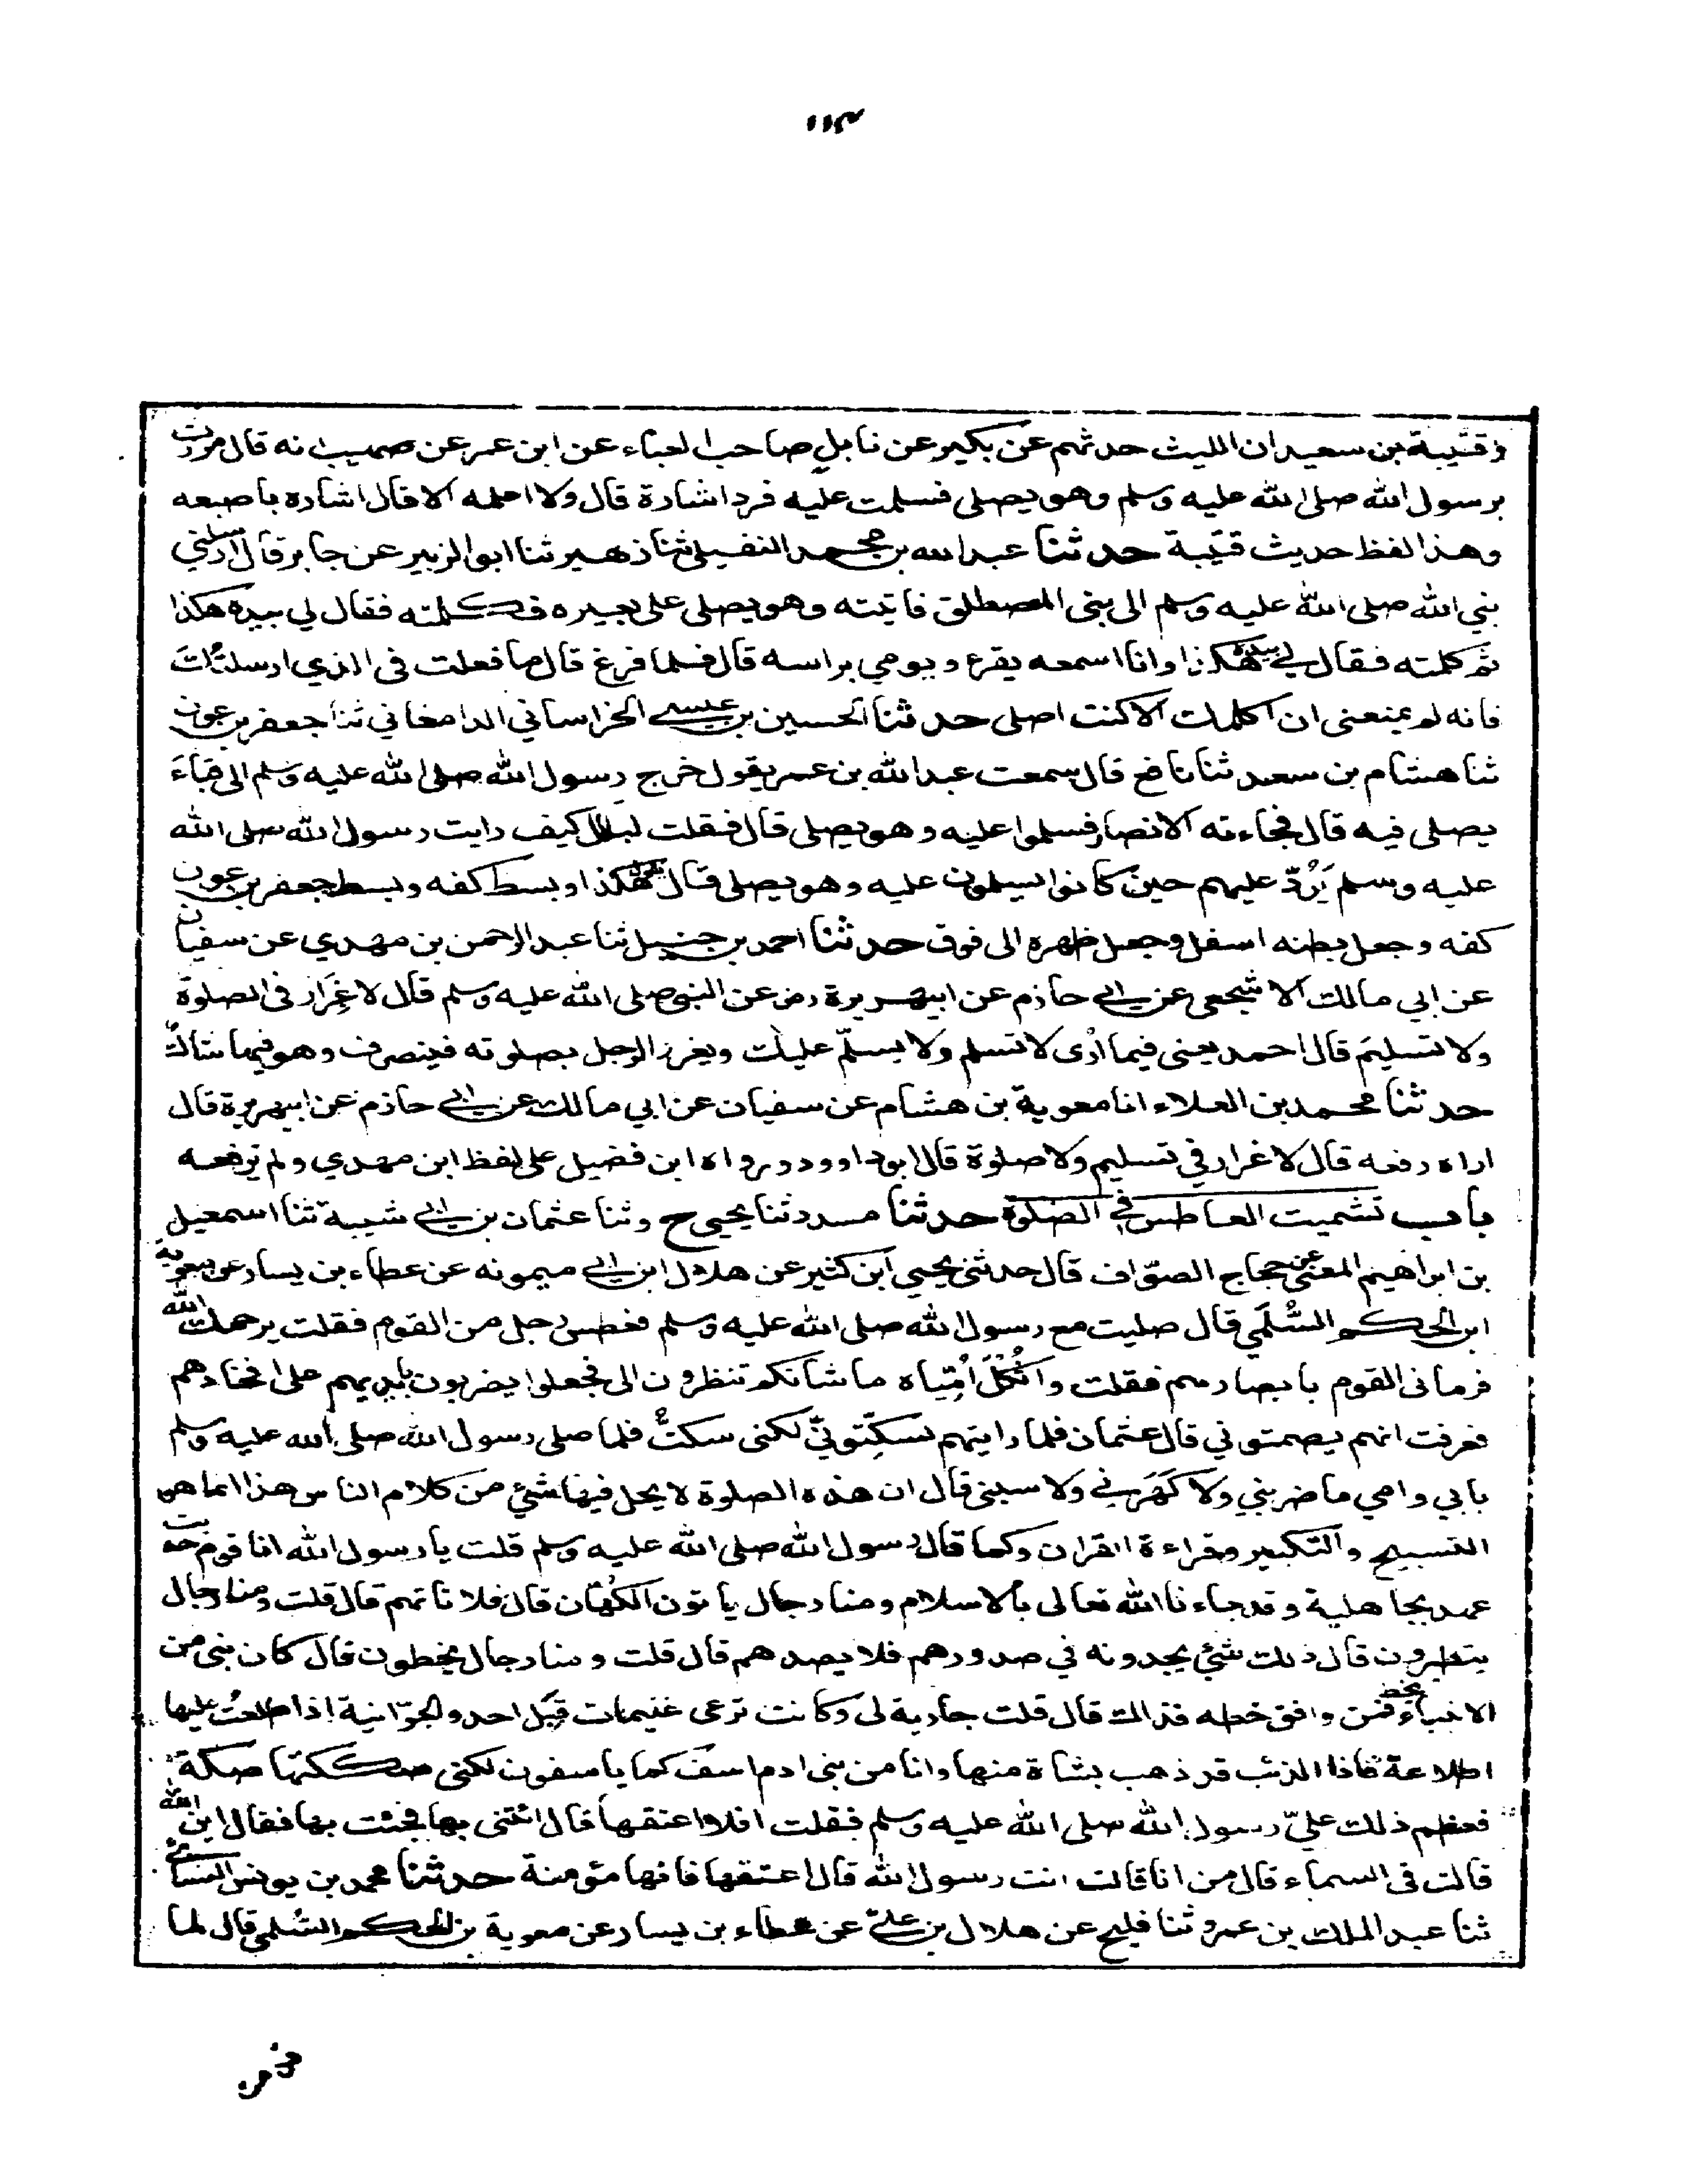 وقتيبة بن سعيد ان الليث حدثهم عن بكير عن نابل صاحب العباء عن ابن عمر عن صهيب انه قال مررت
برسول الله صلى الله عليه وسلم وهو يصلى فسلمت عليه فرد اشارة قال ولا اعلمه الا قال اشاره باصبعه
وهذا لفظ حديث قتيبة حدثنا عبدالله بن محمد النفيلي ثنا زهير ثنا ابوالزبير عن جابر قال ارسلني
نبي الله صلى الله عليه وسلم الى بني المصطلق فاتيته وهو يصلى على بعيره فكلمته فقال لي بيده هكذا
ثم كلمته فقال لي بيده هكذا وانا اسمعه يقرء ويومي براسه قال فلما فرغ قال ما فعلت في الذي ارسلتك
فانه لم يمنعني ان اكلمك الا كنت اصلى حدثنا الحسين بن عيسى الخراساني الدامغاني ثنا جعفر بن عون
ثنا هشام بن سعد ثنا نافع قال سمعت عبدالله بن عمر يقول خرج رسول الله صلى الله عليه وسلم الى قباء
يصلى فيه قال فجاءته الانصار فسلموا عليه وهو يصلى قال فقلت لبلال كيف رايت رسول الله صلى الله
عليه وسلم يَرُدّ عليهم حين كانوا يسلمون عليه وهو يصلى قال يقول هكذا وبسط كفه وبسط جعفر بن عون
كفه وجعل بطنه اسفل وجعل ظهره الى فوق حدثنا احمد بن حنبل ثنا عبد الرحمن بن مهدي عن سفيان
عن ابي مالك الاشجعي عن ابي حازم عن ابيهريرة رض عن النبي صلى الله عليه وسلم قال لا غِرَار في الصلوة
ولا تسليم قال احمد يعني فيما اُرى لا تسلم ولا يسلّم عليك ويغرر الرجل بصلوته فينصرف وهو فيها شاكٌّ
حدثنا محمد بن العلاء انا معوية بن هشام عن سفيان عن ابي مالك عن ابي حازم عن ابيهريرة قال
اراه رفعه قال لا غرار في تسليم ولا صلوة قال ابو داوود ورواه ابن فضيل على لفظ ابن مهدي ولم يرفعه
باب تشميت العاطس في الصلوة حدثنا مسدد ثنا يحيى ح وثنا عثمان بن ابي شيبة ثنا اسمعيل
بن ابراهيم المعنى عن حجاج الصوّاف قال حدثني يحيى ابن كثير عن هلال ابن ابي ميمونه عن عطاء بن يسار عن معوية
ابن الحكم السُّلَمي قال صليت مع رسول الله صلى الله عليه وسلم فعطس رجل من القوم فقلت يرحمك الله
فرماني القوم بابصارهم فقلت واثُكْلَ اُمِّياه ما شانكم تنظرون الى فجعلوا يضربون بايديهم على افخاذهم
فعرفت انهم يصمتوني قال عثمان فلما رايتهم يسكِّتونيّ لكني سكتُّ فلما صلى رسول الله صلى الله عليه وسلم
بابي وامي ما ضربني ولا كَهَرَني ولا سبني قال ان هذه الصلوة لا يحل فيها شئ من كلام الناس هذا انما هو
التسبيح والتكبير وقراءة القران وكما قال رسول الله صلى الله عليه وسلم قلت يا رسول الله انا قوم حديث
عهد بجاهلية وقد جاءنا الله تعالى بالاسلام ومنا رجال ياتون الكهّان قال فلا تاتهم قال قلت ومنا رجال
يتطيرون قال ذلك شئ يجدونه في صدورهم فلا يصدهم قال قلت ومنا رجال يخطون قال كان نبي من
الانبياء يخط فمن وافق خطه فذالك قال قلت جارية لي وكانت ترعى غنيمات قِبَل احد والجوّانية اذا طلعتُ عليها
اطلاعة فاذا الذئب قد ذهب بشاة منها وانا من بني ادم اسف كما ياسفون لكني صككتها صكة
فعظم ذلك عليّ رسول الله صلى الله عليه وسلم فقلت افلا اعتقها قال ائتني بها فجئت بها فقال اين الله
قالت في السماء قال من انا قالت انت رسول الله قال اعتقها فانها مؤمنة حدثنا محمد بن يونس النسائي
ثنا عبد الملك بن عمرو ثنا فليح عن هلال بن علي عن عطاء بن يسار عن معوية بن الحكم السُلمي قال لما